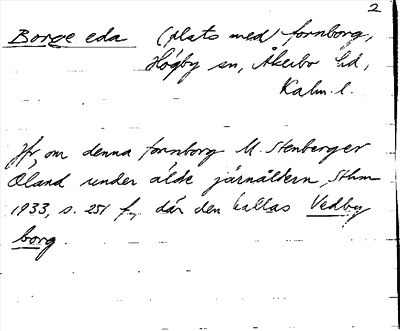 2
Borge eda (plats med) fornborg,
Högby sn, Åkerbo hd,
Kalm. l.
Jfr om denna fornborg M. Stenberger
Öland under äldre järnåldern, Sthm
1933, s. 251 f., där den kallas Vedby
borg.